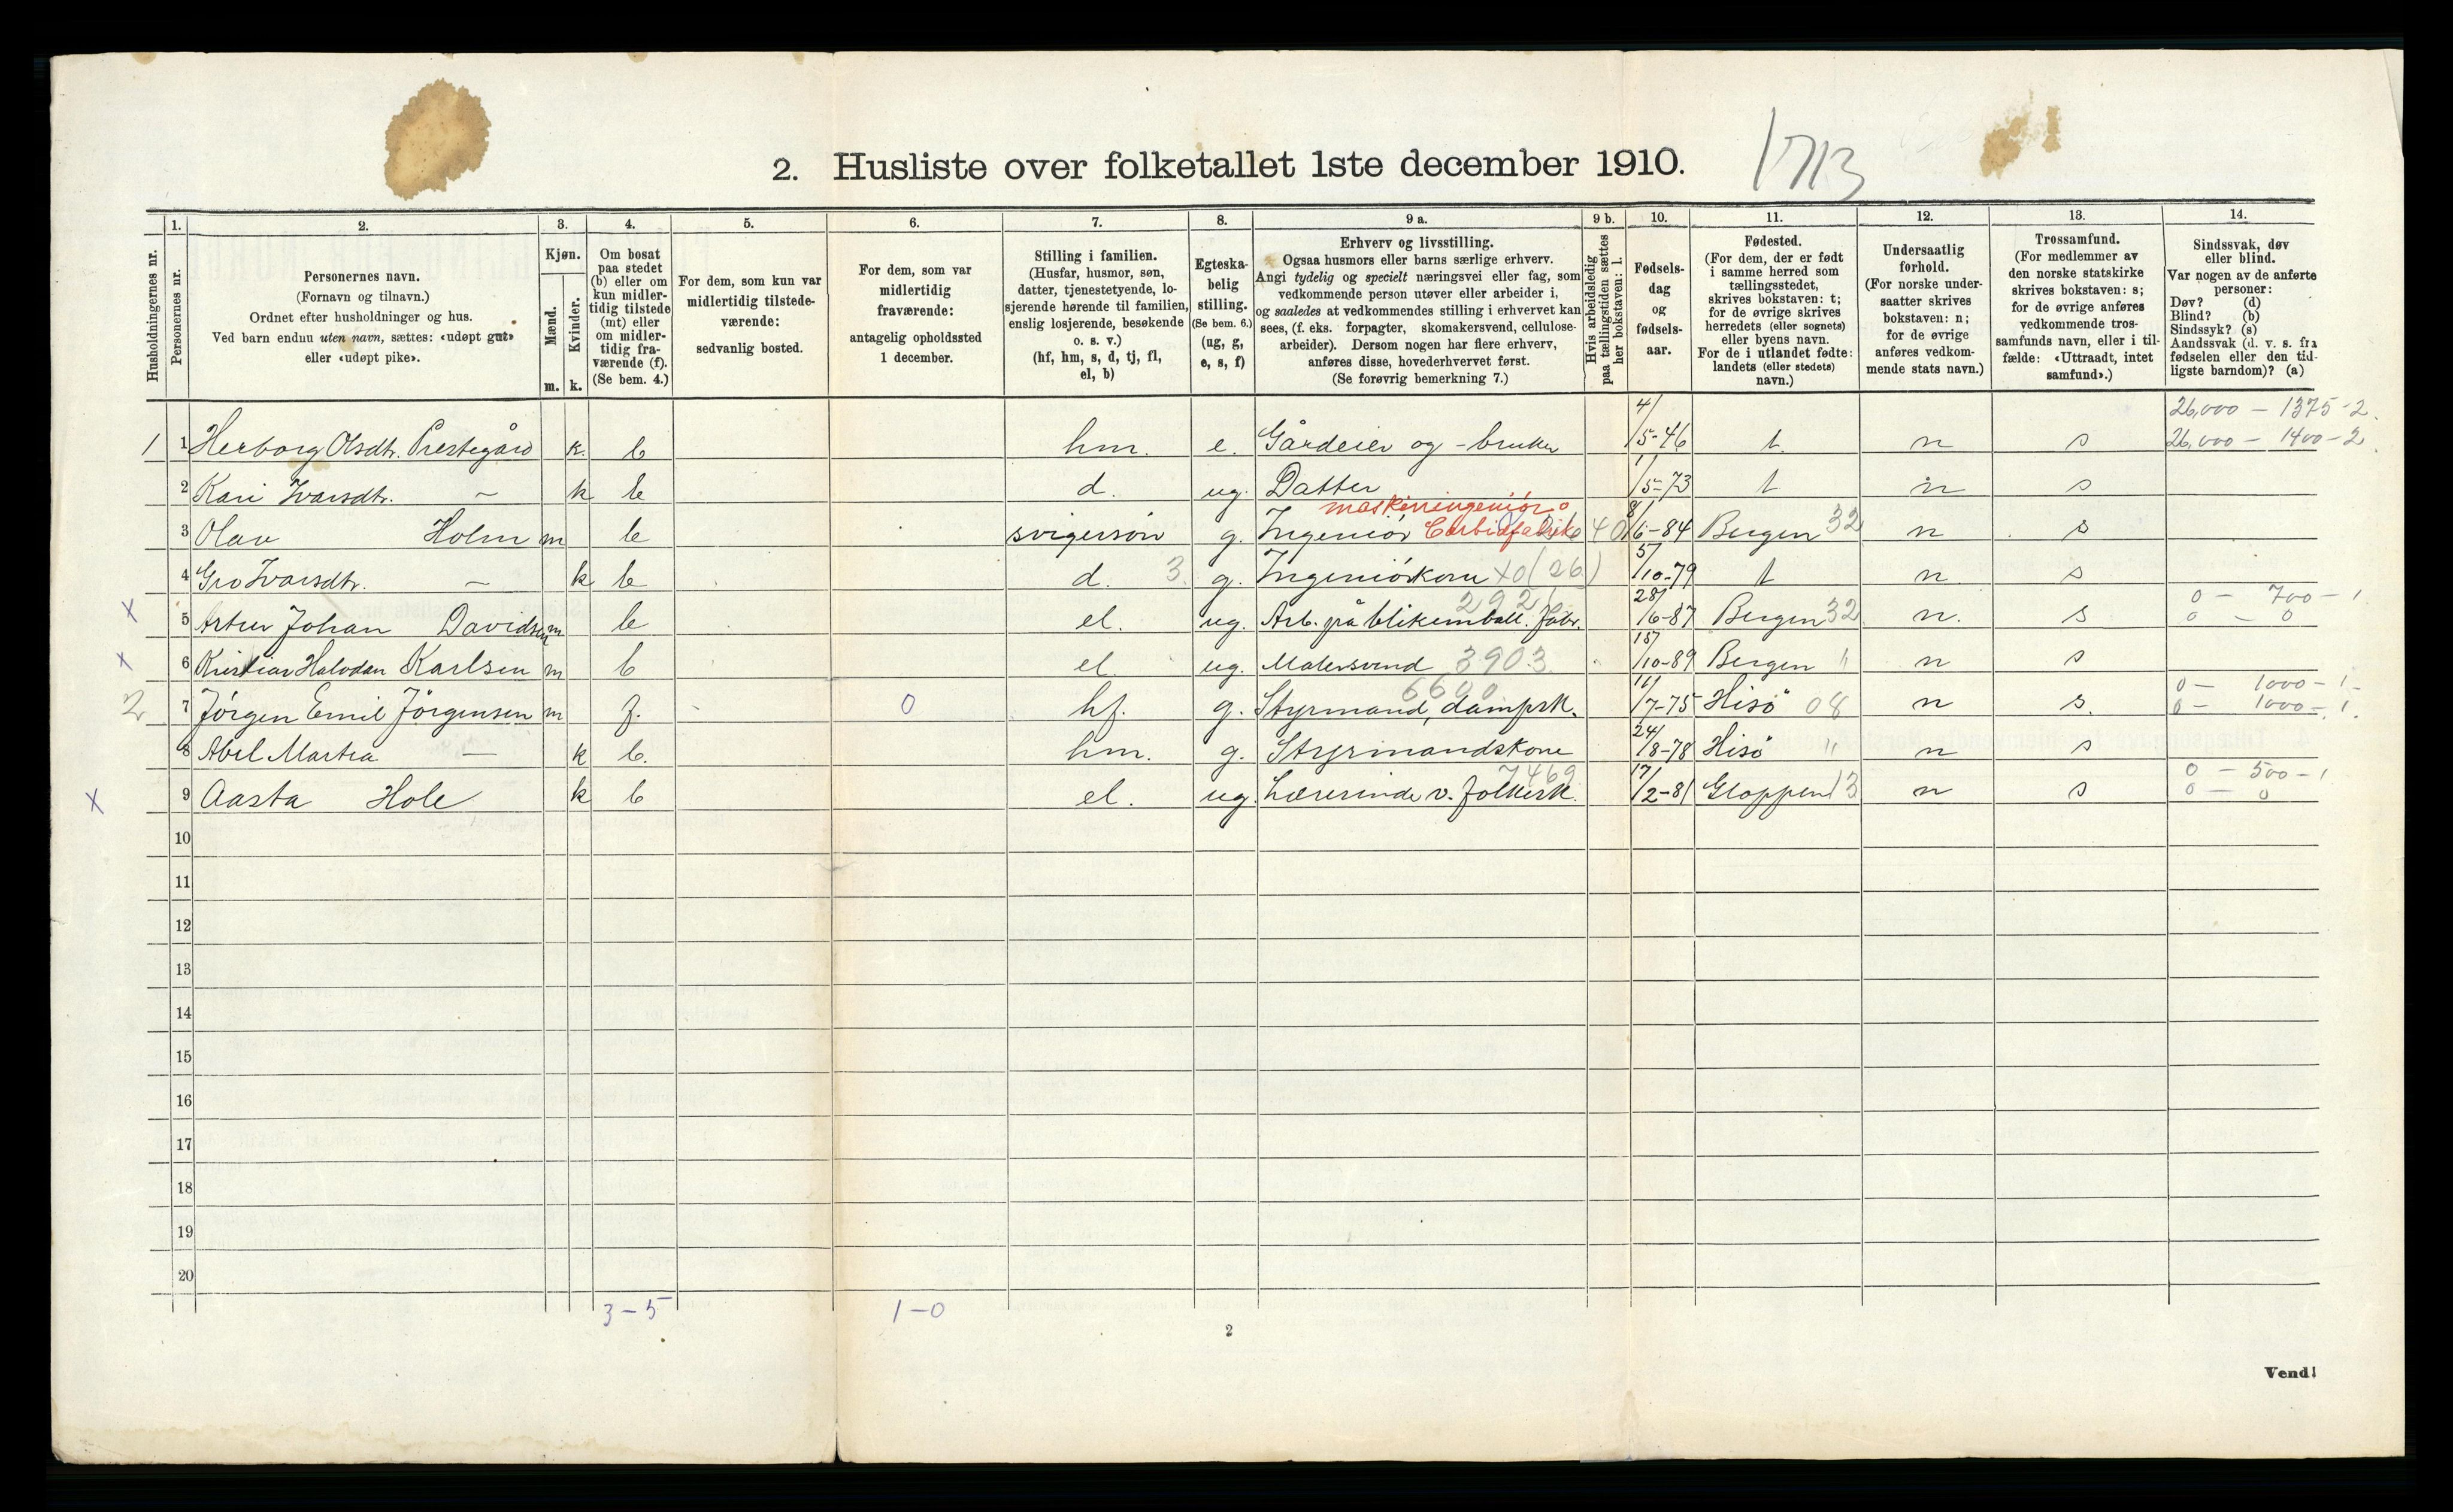 2. Husliste over folketallet 1ste december 1910.
1713
Husholdningernes nr.
1.
Personernes nr.
2.
Personernes navn.
(Fornavn og tilnavn.)
Ordnet efter husholdninger og hus.
Ved barn endnu uten navn, sættes: «udøpt gut»
eller «udøpt pike».
3.
Kjøn.
Mænd.
m.
Kvinder.
k.
4.
Om bosat
paa stedet
(b) eller om
kun midler-
tidig tilstede
(mt) eller
om midler-
tidig fra-
værende (f).
(Se bem. 4.)
5.
For dem, som kun var
midlertidig tilstede-
værende:
sedvanlig bosted.
6.
For dem, som var
midlertidig
fraværende:
antagelig opholdssted
1 december.
7.
Stilling i familien.
(Husfar, husmor, søn,
datter, tjenestetyende, lo-
sjerende hørende til familien,
enslig losjerende, besøkende
o. s. v.)
(hf, hm, s, d, tj, fl,
el, b)
8.
Egteska-
belig
stilling.
(Se bem. 6.)
(ug, g,
e, s, f)
9 a.
Erhverv og livsstilling.
Ogsaa husmors eller barns særlige erhverv.
Angi tydelig og specielt næringsvei eller fag, som
vedkommende person utøver eller arbeider i,
og saaledes at vedkommendes stilling i erhvervet kan
sees, (f. eks. forpagter, skomakersvend, cellulose-
arbeider). Dersom nogen har flere erhverv,
anføres disse, hovederhvervet først.
(Se forøvrig bemerkning 7.)
9 b.
Hvis arbeidsledig
paa tællingstiden sættes
her bokstaven: l.
10.
Fødsels-
dag
og
fødsels-
aar.
11.
Fødested.
(For dem, der er født
i samme herred som
tællingsstedet,
skrives bokstaven: t;
for de øvrige skrives
herredets (eller sognets)
eller byens navn.
For de i utlandet fødte:
landets (eller stedets)
navn.)
12.
Undersaatlig
forhold.
(For norske under-
saatter skrives
bokstaven: n;
for de øvrige
anføres vedkom-
mende stats navn.)
13.
Trossamfund.
(For medlemmer av
den norske statskirke
skrives bokstaven: s;
for de øvrige anføres
vedkommende tros-
samfunds navn, eller i til-
fælde: «Uttraadt, intet
samfund».)
14.
Sindssvak, døv
eller blind.
Var nogen av de anførte
personer:
Døv? (d)
Blind? (b)
Sindssyk? (s)
Aandssvak (d. v. s. fra
fødselen eller den tid-
ligste barndom)? (a)
26,000 – 1375-2.
1 1 Herborg Olsdtr. Prestegård k. b hm. e. Gårdeier og -bruker 4/5-46 t. n s 26,000 – 1400-2
2 Kari Ivarsdtr. – k b d. ug. Datter 1/5-73 t n s
maskiningeniör
3 Olav Holm m b svigersön g. Ingeniör Carbidfabrik 40 8/6-84 Bergen 32 n s
4 Gro Ivarsdtr. – k b d. 3. g. Ingeniörkone X0(26) 5/10-79 t n s
292 0 – 700 – 1
X 5 Artur Johan Davidsen m b el. ug. Arb. på blikemball. fabr. 28/6-87 Bergen 32 n. s 0 – 0
X 6 Kristian Halvdan Karlsen m b el. ug. Malersvend 3903 15/10-89 Bergen " n s
6600 0 – 1000 – 1
2 7 Jörgen Emil Jörgensen m f. 0 hf. g. Styrmand, dampsk. 16/7-75 Hisö 08 n s. 0 – 1000 – 1.
8 Abel Martea – k b. hm. g. Styrmandskone 24/8-78 Hisö " n s
7469 0 – 500 – 1
X 9 Aasta Hole k b el. ug. Lærerinde v. folkesk. 17/2-81 Gloppen 13 n s 0 – 0
10
11
12
13
14
15
16
17
18
19
20
3 – 5 1 – 0
2
Vend!